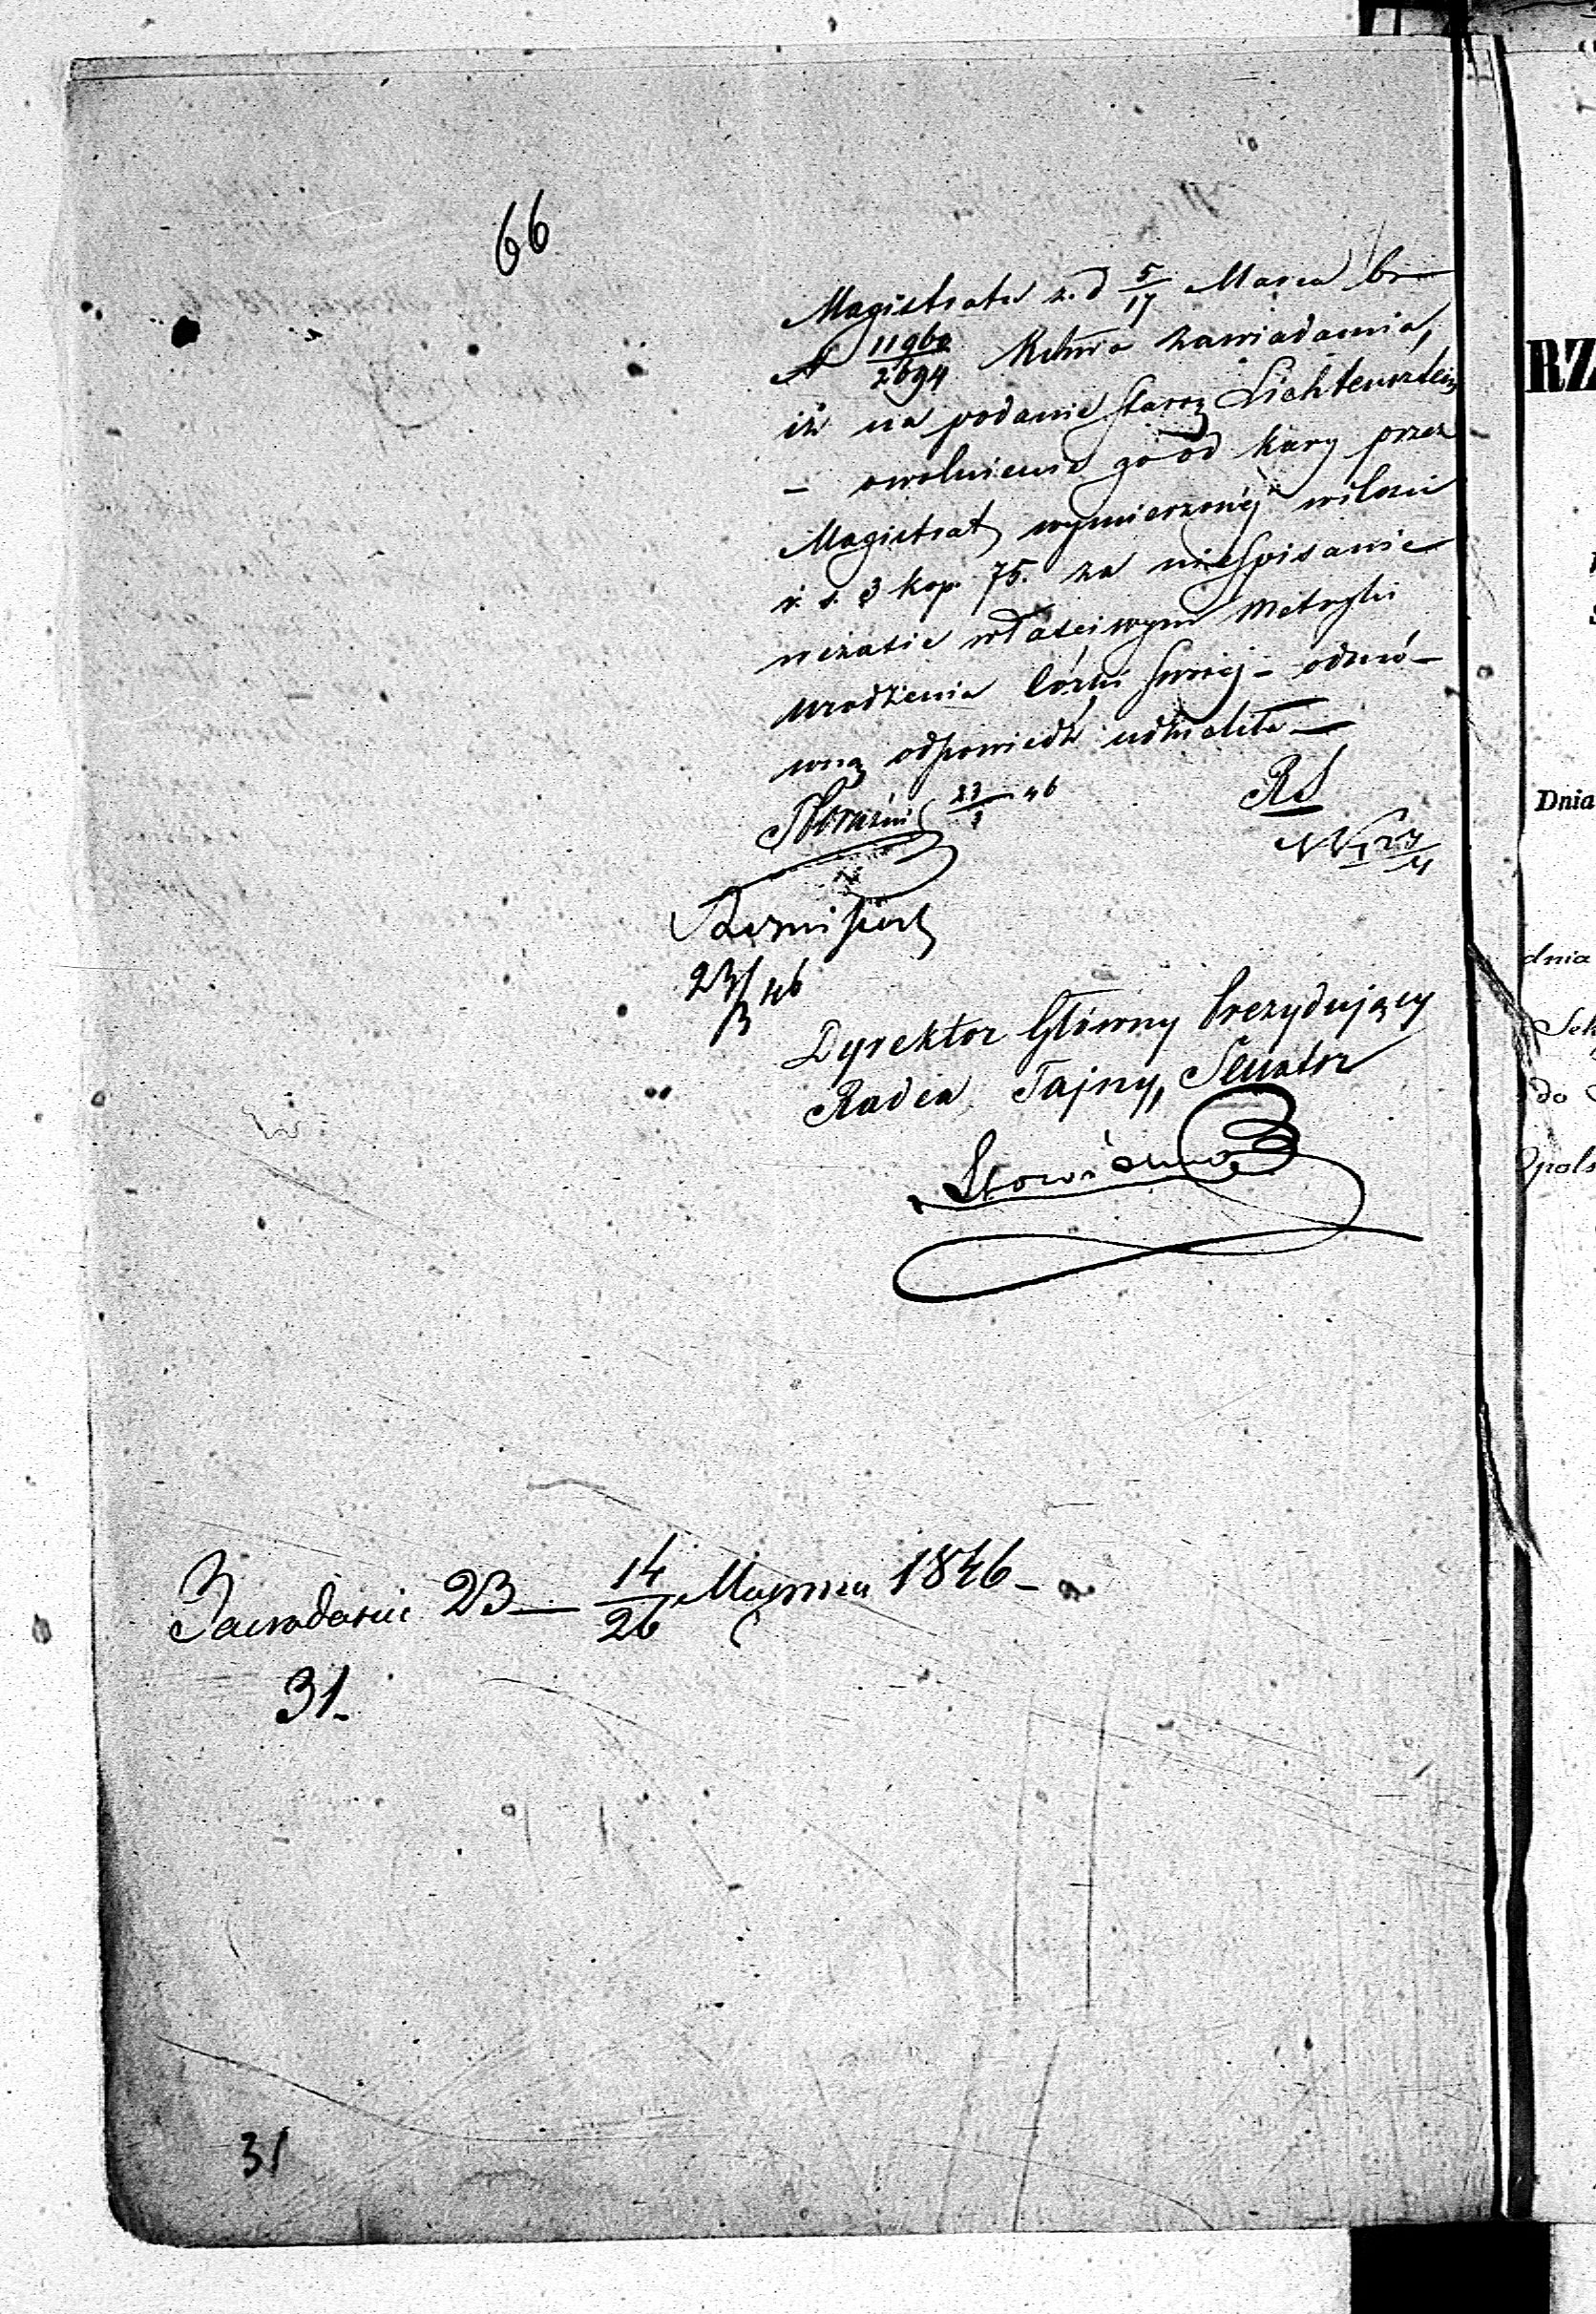 66
Magistratu z d 5/17 Marca br
N 11960/2694 Kmsia zawiadamia,
iż na podanie Staroz Lichtensztein
– uwolnienie go od kary przez
Magistrat wymierzonéj wilości
r. s. 3 kop. 75. za niespisanie
wczasie właściwym Metryki
urodzenia Córki swojej – odmó–
wną odpowiedź udzieliła –
23/3 46
RS
27/4
23/3 46
Dyrektor Główny Prezydujący
Radca Tajny, Senator
23 – 14/26 Marca 1846 –
31.
31
RZ
Dnia
dnia
do